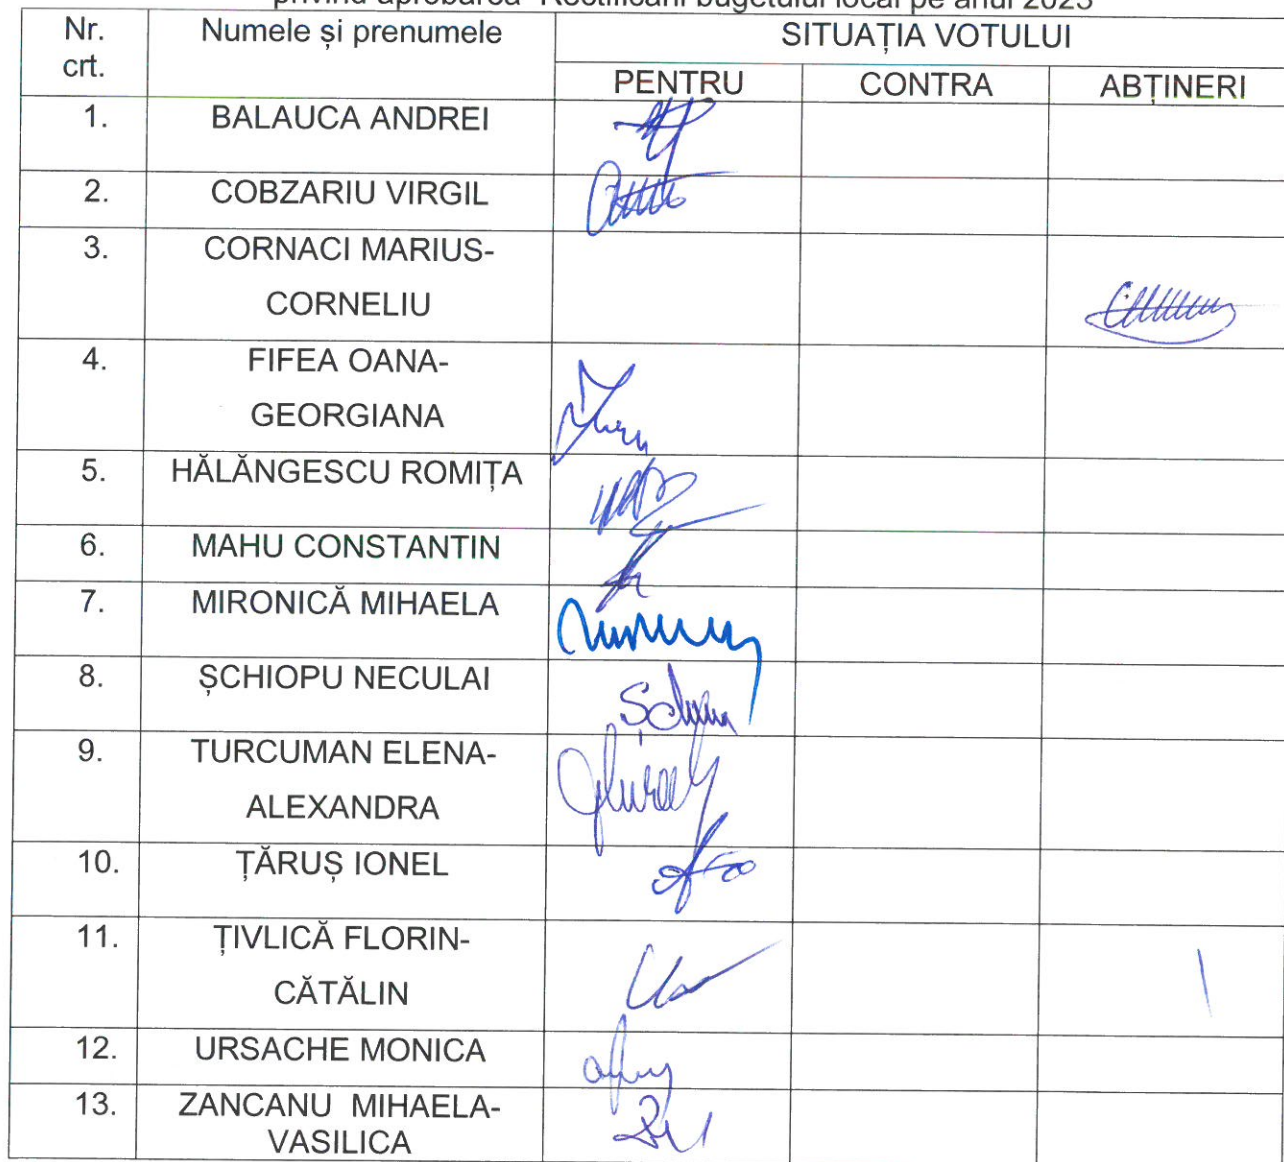 privind aprobarea Rectificării bugetului local pe anul 2023
Nr. crt. Numele și prenumele SITUAȚIA VOTULUI
PENTRU CONTRA ABȚINERI
1. BALAUCA ANDREI
2. COBZARIU VIRGIL
3. CORNACI MARIUS-
CORNELIU
4. FIFEA OANA-
GEORGIANA
5. HĂLĂNGESCU ROMIȚA
6. MAHU CONSTANTIN
7. MIRONICĂ MIHAELA
8. ȘCHIOPU NECULAI
9. TURCUMAN ELENA-
ALEXANDRA
10. ȚĂRUȘ IONEL
11. ȚIVLICĂ FLORIN-
CĂTĂLIN
12. URSACHE MONICA
13. ZANCANU MIHAELA-
VASILICA